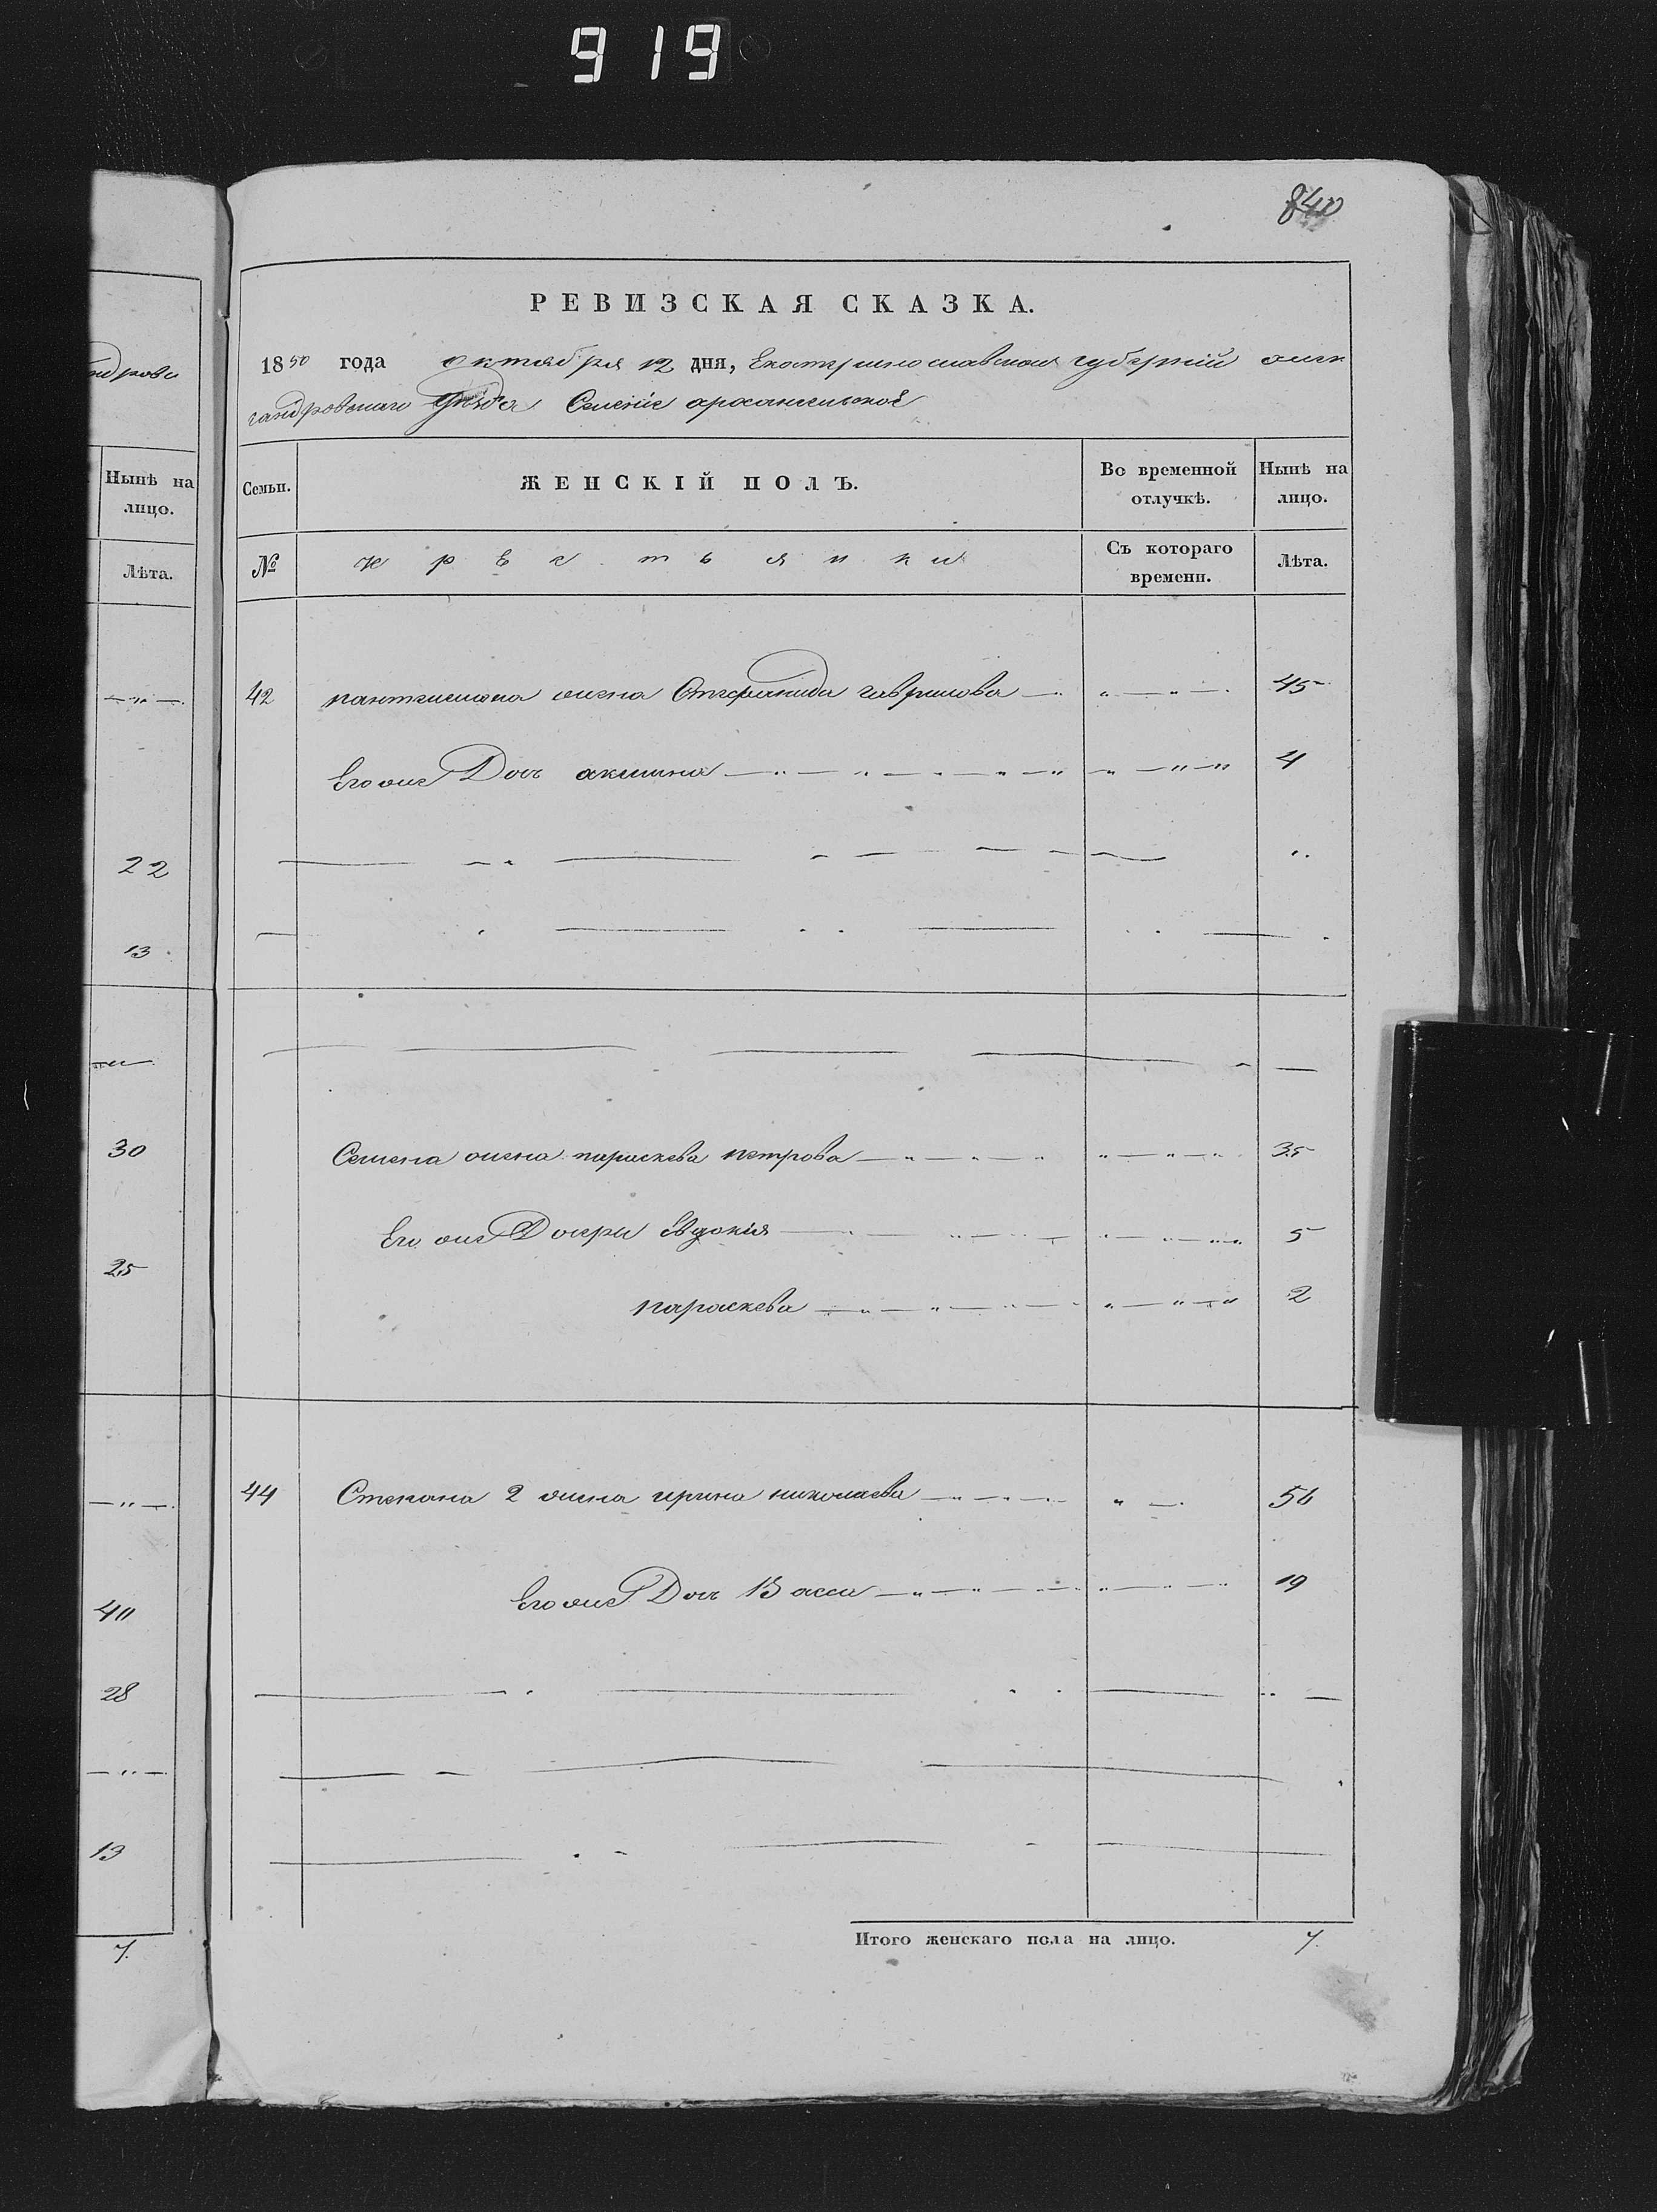 919
840
РЕВИЗСКАЯ СКАЗКА.
1850 года октября 12 дня, Екатеринославской губерніи алек
сандровскаго уѣзда Селеніе архангельское
ндровс
Нынѣ на лицо.
Лѣта.
22
13
30
25
40
28
13
7.
Семьи.
ЖЕНСКІЙ ПОЛЪ.
Во временной отлучкѣ.
Нынѣ на лицо.
№
крестьянки
Съ котораго времени.
Лѣта.
42 пантелимона жена Стефанида гаврилова 45
Его же Дочь акилина 4
Семена жена параскева петрова 35
Его же Дочери евдокія 5
параскева 2
44 Степана 2 жена ирина николаева 56
Его же Дочь Васса 19
Итого женскаго пола на лицо. 7.